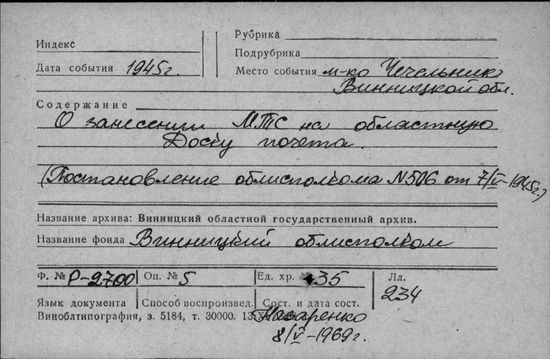 Индекс
Рубрика
Подрубрика
Дата события 1945г.
Место события м-ко Чечельник
Винницкой обл.
Содержание
О занесении МТС на областную
Доску почета.
(Постановление облисполкома N 506 от 7/V-1945г.)
Название архива: Винницкий областной государственный архив.
Название фонда Винницкий облисполком
Ф. № Р-2700 Оп. № 5 Ед. хр. 35 Лл. 234
Язык документа Способ воспроизвед. Сост. и дата сост.
Виноблтипография, з. 5184, т. 30000. Назаренко
8/V-1969г.